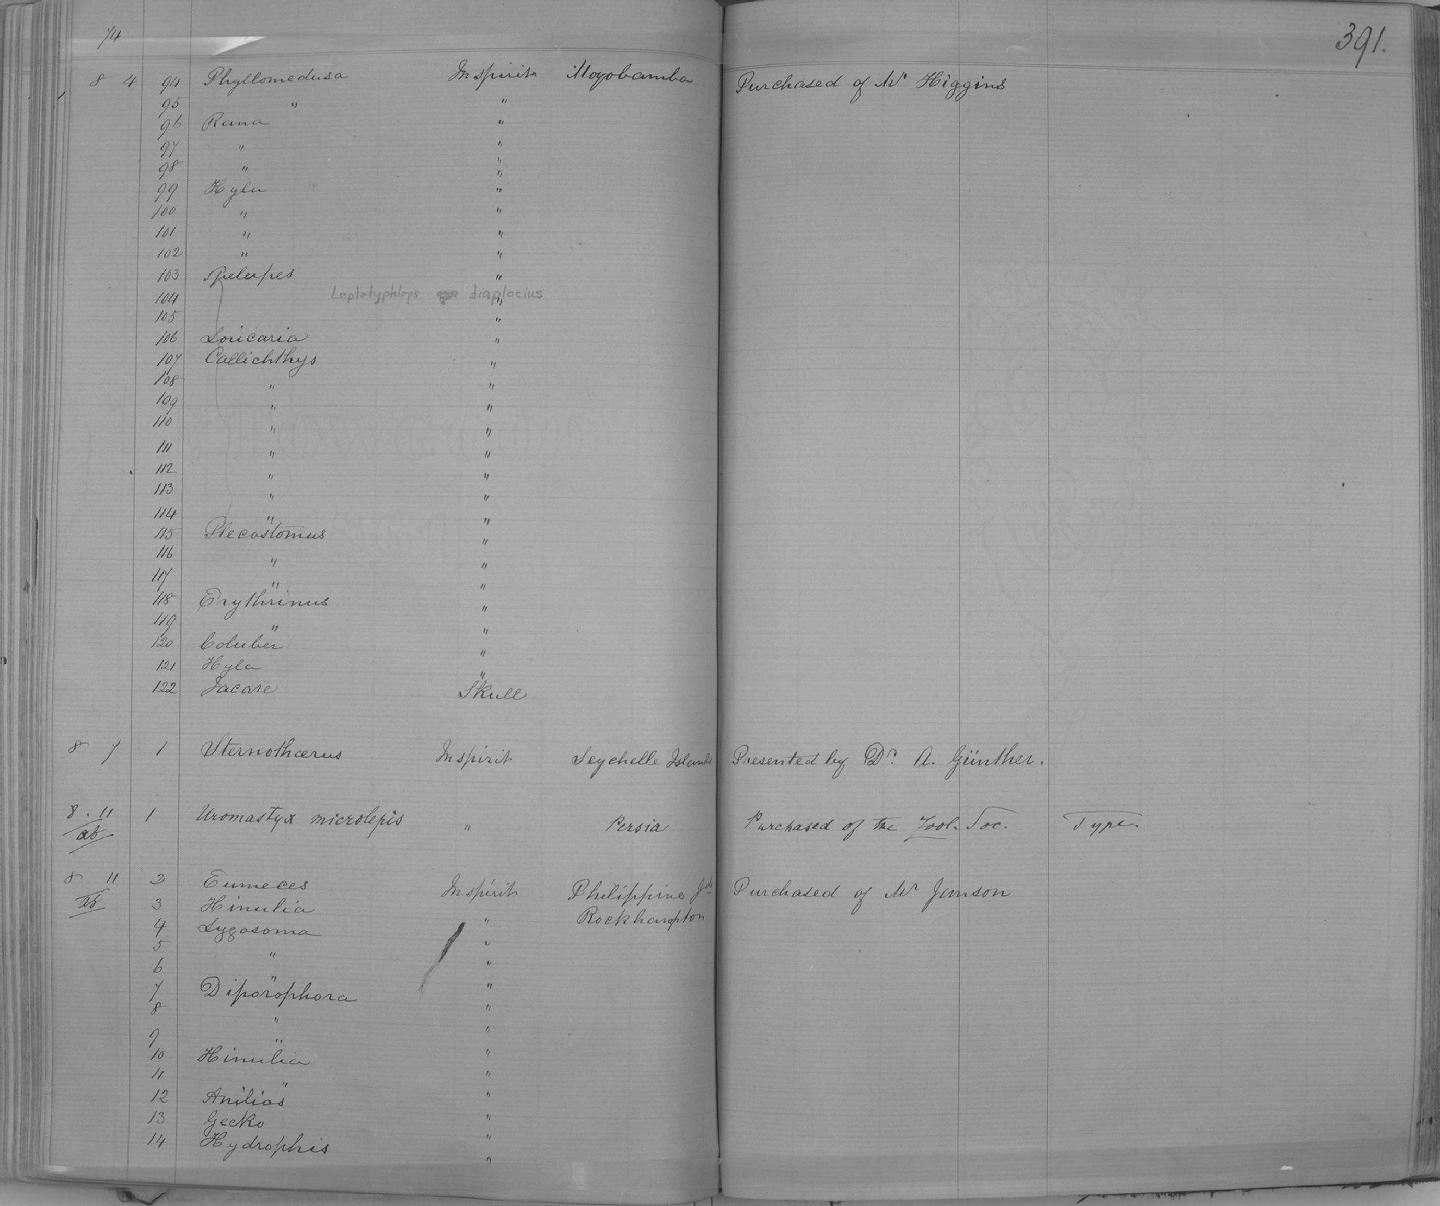 74 391.
8 4 94 Phyllomedusa In spirit Moyobamba Purchased of Mr Higgins
95 " "
96 Rana "
97 " "
98 " "
99 Hyla "
100 " "
101 " "
102 " "
103 Spelerpes "
104 Leptotyphlops diaplocius "
105 "
106 Loricaria "
107 Callichthys "
108 " "
109 " "
110 " "
111 " "
112 " "
113 " "
114 " "
115 Plecostomus "
116 " "
117 " "
118 Erythrinus "
119 " "
120 Coluber "
121 Hyla "
122 Jacare Skull
8 7 1 Sternothærus In spirit Seychelle Islands Presented by Dr. A. Günther.
8 . 11 1 Uromastyx microlepis " Persia Purchased of the Zool. Soc. Type.
8 11 2 Eumeces In spirit Philippine Ids Purchased of Mr Jamson
3 Hinulia " Rockhampton
4 Lygosoma "
5 " "
6 " "
7 Diporophora "
8 " "
9 " "
10 Hinulia "
11 " "
12 Anilios "
13 Gecko "
14 Hydrophis "